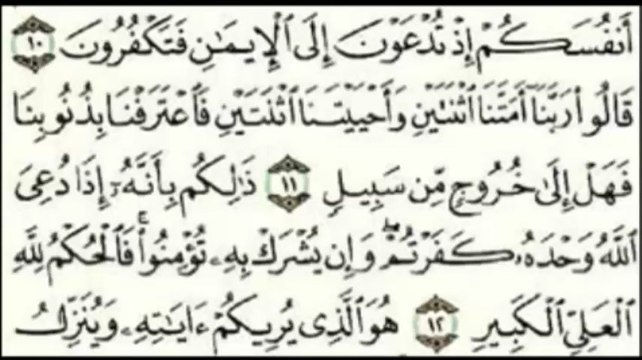 أَنفُسَكُمْ إِذْ تُدْعَوْنَ إِلَى ٱلْإِيمَـٰنِ فَتَكْفُرُونَ ١٠
قَالُوا۟ رَبَّنَآ أَمَتَّنَا ٱثْنَتَيْنِ وَأَحْيَيْتَنَا ٱثْنَتَيْنِ فَٱعْتَرَفْنَا بِذُنُوبِنَا
فَهَلْ إِلَىٰ خُرُوجٍ مِّن سَبِيلٍ ١١ ذَٰلِكُم بِأَنَّهُۥٓ إِذَا دُعِىَ
ٱللَّهُ وَحْدَهُۥ كَفَرْتُمْ ۖ وَإِن يُشْرَكْ بِهِۦ تُؤْمِنُوا۟ ۚ فَٱلْحُكْمُ لِلَّهِ
ٱلْعَلِىِّ ٱلْكَبِيرِ ١٢ هُوَ ٱلَّذِى يُرِيكُمْ ءَايَـٰتِهِۦ وَيُنَزِّلُ